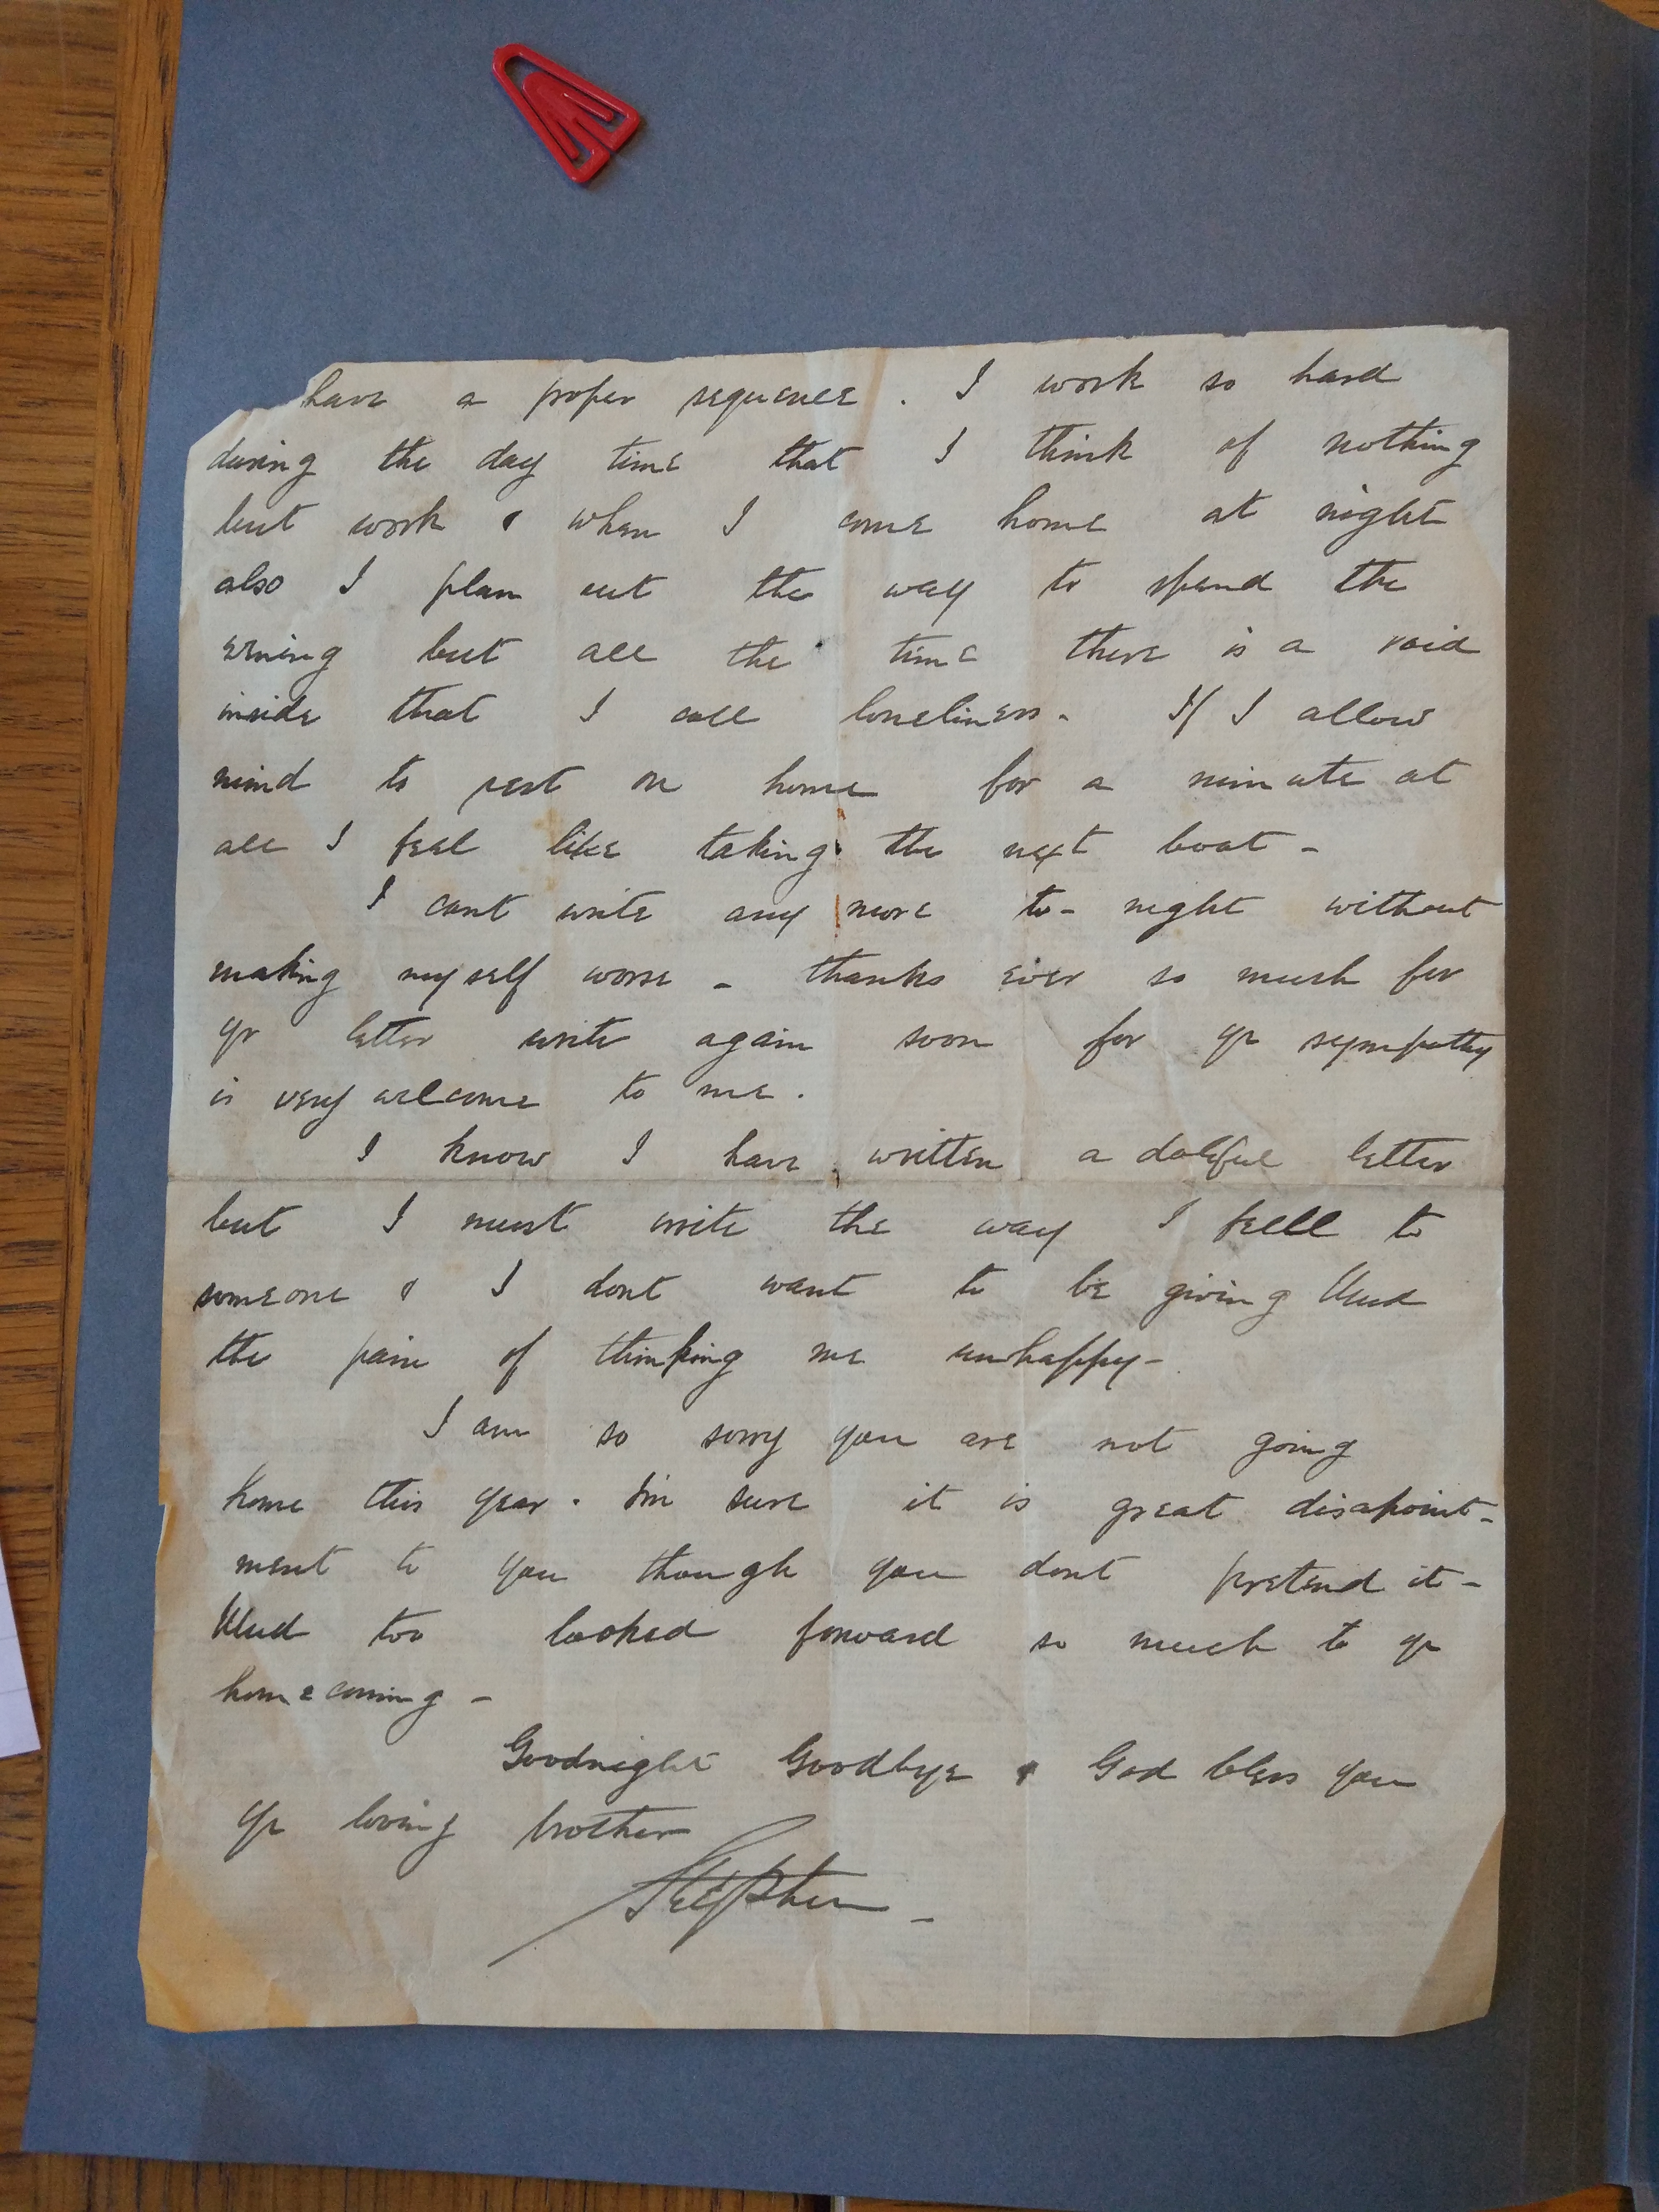 have a proper sequence. I work so hard
during the day time that I think of nothing
but work & when I come home at night
also I plan out the way to spend the
evening but all the time there is a void
inside that I call loneliness - If I allow
mind to rest on home for a minute at
all I feel like taking the next boat -
I cant write any more to-night without
making myself worse - thanks ever so much for
yr letter write again soon for yr sympathy
is very welcome to me.
I know I have written a doleful letter
but I must write the way I feell to
someone & I dont want to be giving
the pain of thinking me unhappy -
I am so sorry you are not going
home this year. I'm sure it is great disapoint-
ment to you though you dont pretend it -
too looked forward so much to yr
homecoming -
Goodnight Goodbye & God bless you
yr loving brother
Stephen -